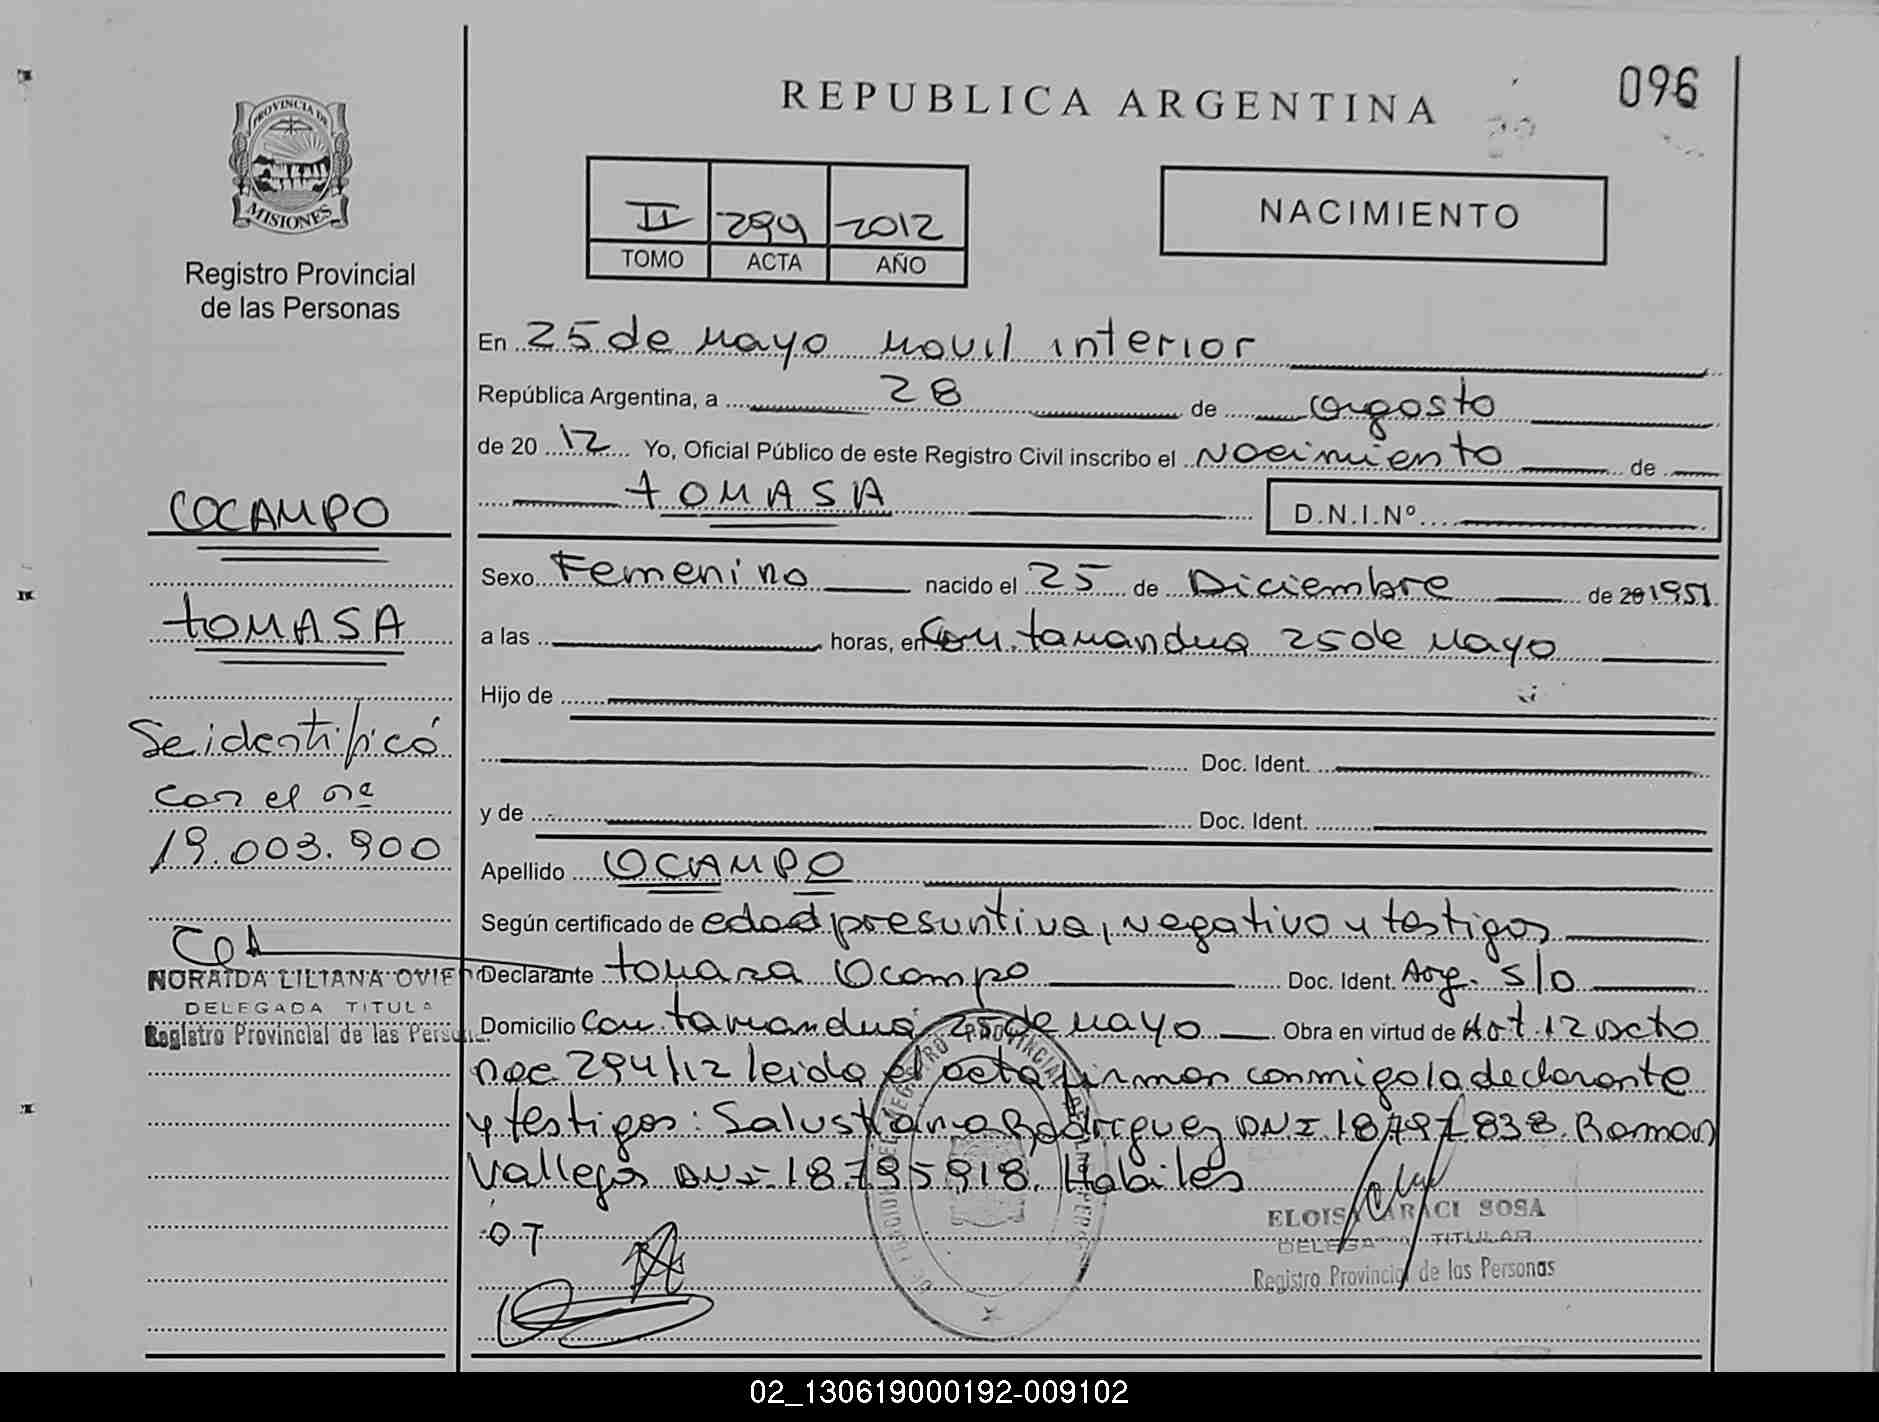 096
REPUBLICA ARGENTINA
PROVINCIA DE
MISIONES
Registro Provincial
de las Personas
II 299 2012
TOMO ACTA AÑO
NACIMIENTO
En 25 de Mayo Movil interior
República Argentina, a 28 de agosto
de 2012 Yo, Oficial Público de este Registro Civil inscribo el Nacimiento de
TOMASA
D.N.I.Nº
Sexo Femenino nacido el 25 de Diciembre de 20 1951
a las horas, en Con. tamandua 25 de Mayo
Hijo de
Doc. Ident.
y de Doc. Ident.
Apellido OCAMPO
Según certificado de edad presuntiva, negativo y testigos
Declarante tomasa Ocampo Doc. Ident. Arg. S/D
Domicilio Con. tamandua 25 de Mayo Obra en virtud de Art. 12 Dcto
nac. 294/12 leida el acta firman conmigo la declarante
y testigos: Salustiana Rodriguez DNI 18797838. Ramon
Vallejos DNI 18.795918. Habiles
OT
ELOISA ARACI SOSA
DELEGADA TITULAR
Registro Provincial de las Personas
OCAMPO
TOMASA
Se identificó
con el nº
19.003.900
NORAIDA LILIANA OVIE
DELEGADA TITULA
Registro Provincial de las Person
02_130619000192-009102